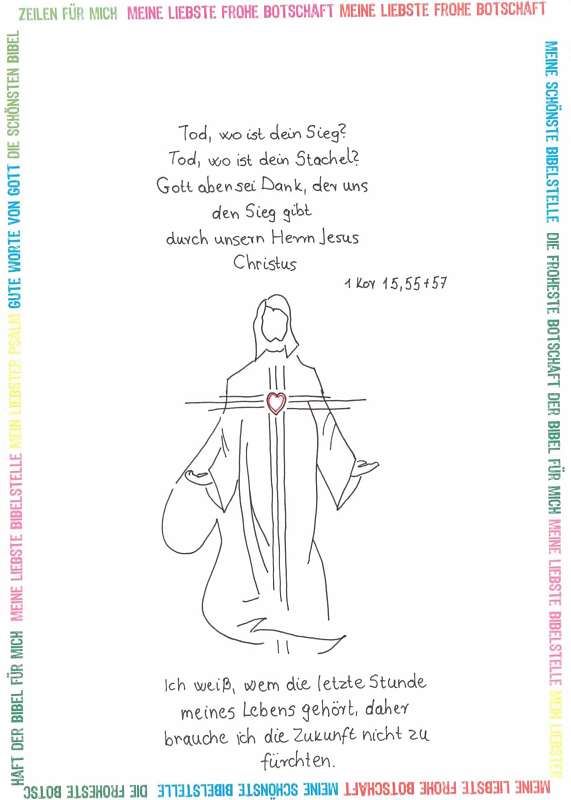 ZEILEN FÜR MICH MEINE LIEBSTE FROHE BOTSCHAFT MEINE LIEBSTE FROHE BOTSCHAFT
MEINE SCHÖNSTE BIBELSTELLE DIE FROHESTE BOTSCHAFT DER BIBEL FÜR MICH MEINE LIEBSTE BIBELSTELLE MEIN LIEBSTER
Tod, wo ist dein Sieg?
Tod, wo ist dein Stachel?
Gott aber sei Dank, der uns
den Sieg gibt
durch unsern Herrn Jesus
Christus
1 Kor 15,55+57
Ich weiß, wem die letzte Stunde
meines Lebens gehört, daher
brauche ich die Zukunft nicht zu
fürchten.
MEINE LIEBSTE FROHE BOTSCHAFT MEINE SCHÖNSTE BIBELSTELLE DIE FROHESTE BOTSC
HAFT DER BIBEL FÜR MICH MEINE LIEBSTE BIBELSTELLE MEIN LIEBSTER PSALM GUTE WORTE VON GOTT DIE SCHÖNSTEN BIBEL